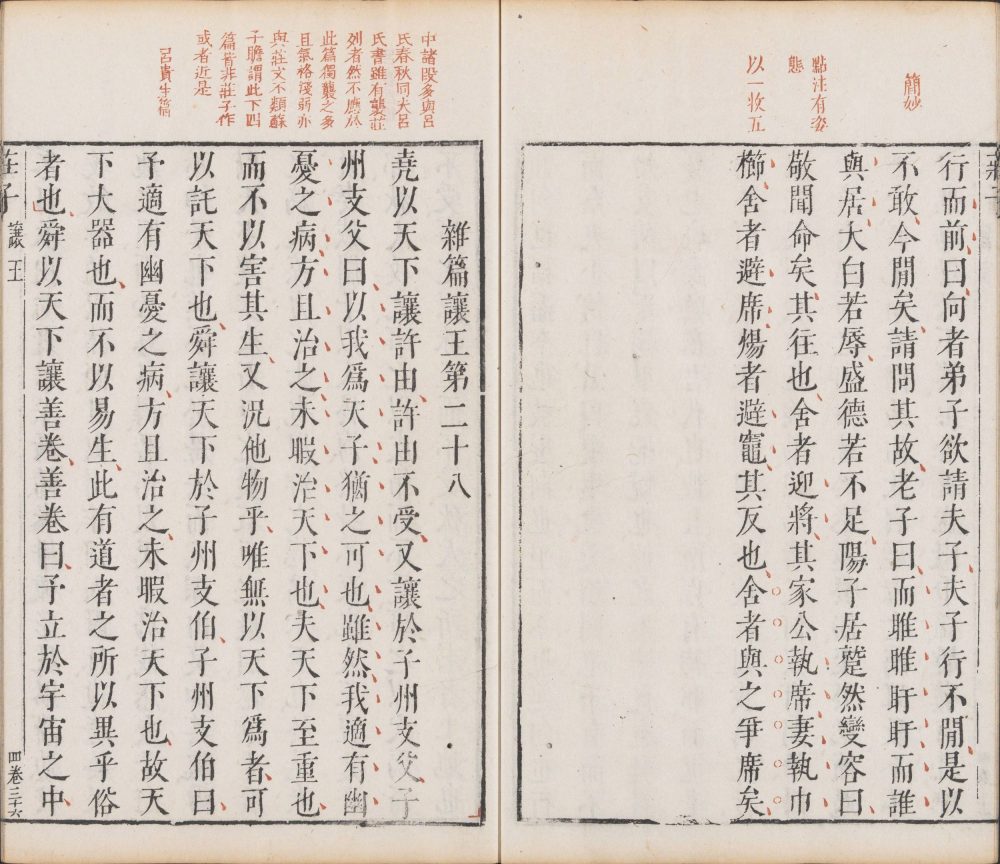 簡妙
點注有姿
態
以一收五
行而前曰向者弟子欲請夫子夫子行不閒是以
不敢今閒矣請問其故老子曰而睢睢盱盱而誰
與居大白若辱盛德若不足陽子居蹵然變容曰
敬聞命矣其往也舍者迎將其家公執席妻執巾
櫛舍者避席煬者避竈其反也舍者與之爭席矣
中諸段多與呂
氏春秋同大呂
氏書雖有襲莊
列者然不應於
此篇獨襲之多
且氣格淺弱亦
與莊文不類蘇
子瞻謂此下四
篇皆非莊子作
或者近是
呂貴生篇
雜篇讓王第二十八
堯以天下讓許由許由不受又讓於子州支父子
州支父曰以我爲天子猶之可也雖然我適有幽
憂之病方且治之未暇治天下也夫天下至重也
而不以害其生又況他物乎唯無以天下爲者可
以託天下也舜讓天下於子州支伯子州支伯曰
予適有幽憂之病方且治之未暇治天下也故天
下大器也而不以易生此有道者之所以異乎俗
者也舜以天下讓善卷善卷曰予立於宇宙之中
莊子 讓王 四卷三十六